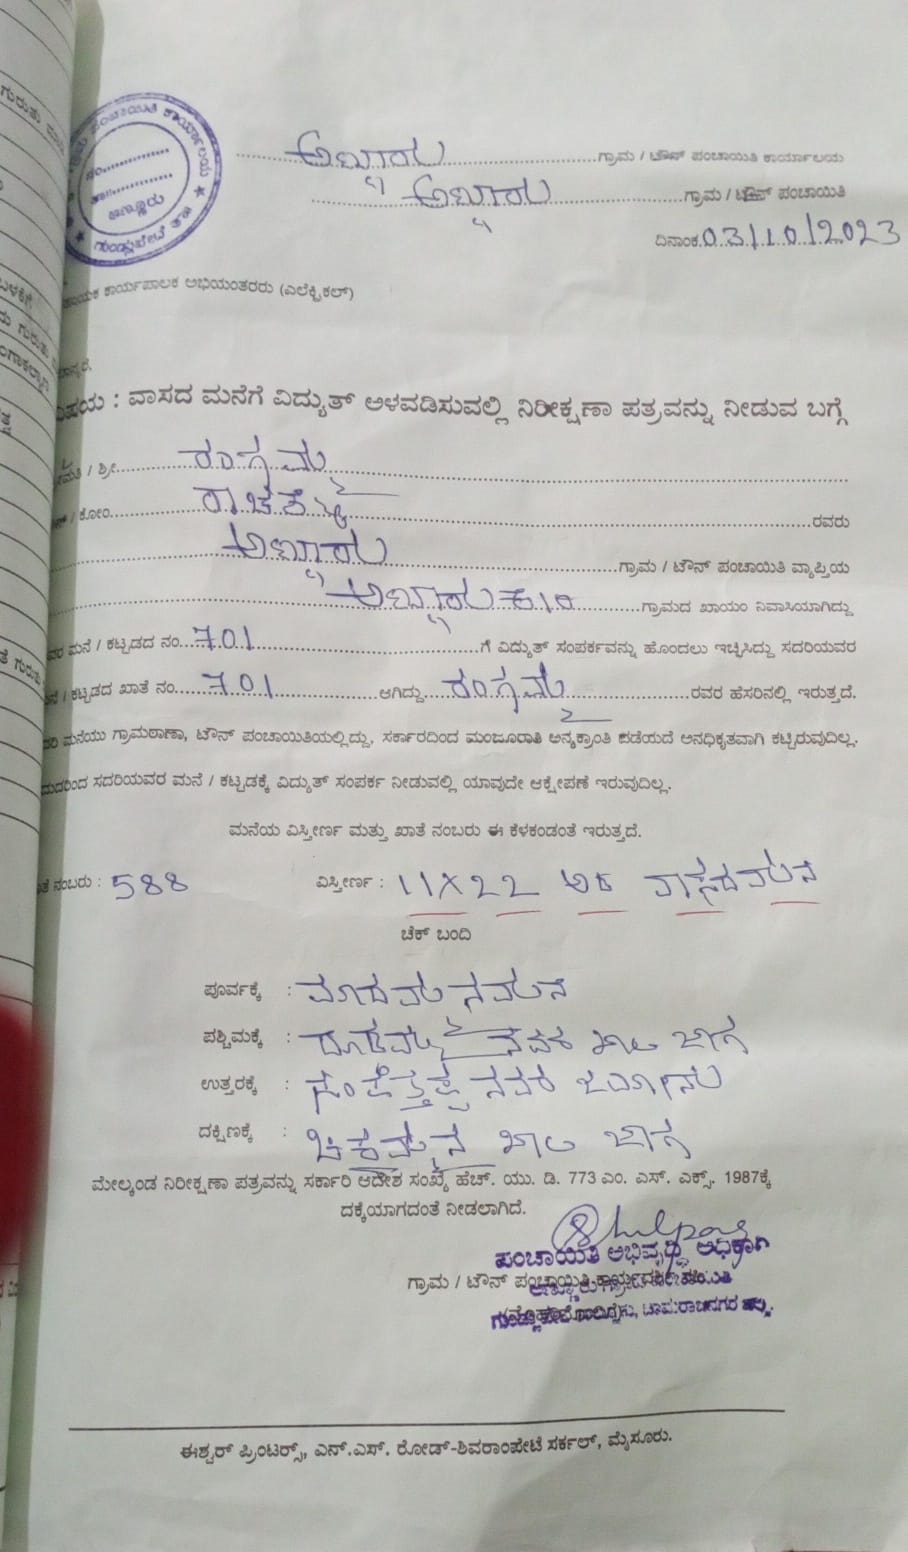 ಪಂಚಾಯಿತಿ ಕಾರ್ಯಾಲಯ
ಅಣ್ಣೂರು
ಗುಂಡ್ಲುಪೇಟೆ ತಾ||
ಅಣ್ಣೂರು ಗ್ರಾಮ / ಟೌನ್ ಪಂಚಾಯಿತಿ ಕಾರ್ಯಾಲಯ
ಅಣ್ಣೂರು ಗ್ರಾಮ / ಟೌನ್ ಪಂಚಾಯಿತಿ
ದಿನಾಂಕ 03/10/2023
ಕಾರ್ಯಪಾಲಕ ಅಭಿಯಂತರರು (ಎಲೆಕ್ಟ್ರಿಕಲ್)
ವಿಷಯ : ವಾಸದ ಮನೆಗೆ ವಿದ್ಯುತ್ ಅಳವಡಿಸುವಲ್ಲಿ ನಿರೀಕ್ಷಣಾ ಪತ್ರವನ್ನು ನೀಡುವ ಬಗ್ಗೆ
/ ಶ್ರೀ ರಂಗಮ್ಮ
/ ಕೋಂ ರಾಚಶೆಟ್ಟಿ ರವರು
ಅಣ್ಣೂರು ಗ್ರಾಮ / ಟೌನ್ ಪಂಚಾಯಿತಿ ವ್ಯಾಪ್ತಿಯ
ಅಣ್ಣೂರು ಗ್ರಾಮದ ಖಾಯಂ ನಿವಾಸಿಯಾಗಿದ್ದು
ಮನೆ / ಕಟ್ಟಡದ ನಂ. 701 ಗೆ ವಿದ್ಯುತ್ ಸಂಪರ್ಕವನ್ನು ಹೊಂದಲು ಇಚ್ಛಿಸಿದ್ದು ಸದರಿಯವರ
/ ಕಟ್ಟಡದ ಖಾತೆ ನಂ. 701 ಆಗಿದ್ದು ರಂಗಮ್ಮ ರವರ ಹೆಸರಿನಲ್ಲಿ ಇರುತ್ತದೆ.
ಮನೆಯು ಗ್ರಾಮಠಾಣಾ, ಟೌನ್ ಪಂಚಾಯಿತಿಯಲ್ಲಿದ್ದು, ಸರ್ಕಾರದಿಂದ ಮಂಜೂರಾತಿ ಅನ್ಯಕ್ರಾಂತಿ ಪಡೆಯದೆ ಅನಧಿಕೃತವಾಗಿ ಕಟ್ಟಿರುವುದಿಲ್ಲ.
ಸದರಿಯವರ ಮನೆ / ಕಟ್ಟಡಕ್ಕೆ ವಿದ್ಯುತ್ ಸಂಪರ್ಕ ನೀಡುವಲ್ಲಿ ಯಾವುದೇ ಆಕ್ಷೇಪಣೆ ಇರುವುದಿಲ್ಲ.
ಮನೆಯ ವಿಸ್ತೀರ್ಣ ಮತ್ತು ಖಾತೆ ನಂಬರು ಈ ಕೆಳಕಂಡಂತೆ ಇರುತ್ತದೆ.
ನಂಬರು : 588 ವಿಸ್ತೀರ್ಣ : 11X22 ಅಡಿ ವಾಸದಮನೆ
ಚೆಕ್ ಬಂದಿ
ಪೂರ್ವಕ್ಕೆ : ಮಾದಮ್ಮನಮನೆ
ಪಶ್ಚಿಮಕ್ಕೆ : ದೂಡಮ್ಮನವರ ಖಾಲಿ ಜಾಗ
ಉತ್ತರಕ್ಕೆ : ನವರ ಜಮೀನು
ದಕ್ಷಿಣಕ್ಕೆ : ಚಿಕ್ಕಮ್ಮನ ಖಾಲಿ ಜಾಗ
ಮೇಲ್ಕಂಡ ನಿರೀಕ್ಷಣಾ ಪತ್ರವನ್ನು ಸರ್ಕಾರಿ ಆದೇಶ ಸಂಖ್ಯೆ ಹೆಚ್. ಯು. ಡಿ. 773 ಎಂ. ಎಸ್. ಎಕ್ಸ್. 1987ಕ್ಕೆ
ದಕ್ಕೆಯಾಗದಂತೆ ನೀಡಲಾಗಿದೆ.
ಪಂಚಾಯಿತಿ ಅಭಿವೃದ್ಧಿ ಅಧಿಕಾರಿ
ಗ್ರಾಮ / ಟೌನ್ ಪಂಚಾಯ್ತಿ
ಚಾಮರಾಜನಗರ ಜಿಲ್ಲೆ.
ಈಶ್ವರ್ ಪ್ರಿಂಟರ್ಸ್, ಎನ್.ಎಸ್. ರೋಡ್-ಶಿವರಾಂಪೇಟೆ ಸರ್ಕಲ್, ಮೈಸೂರು.